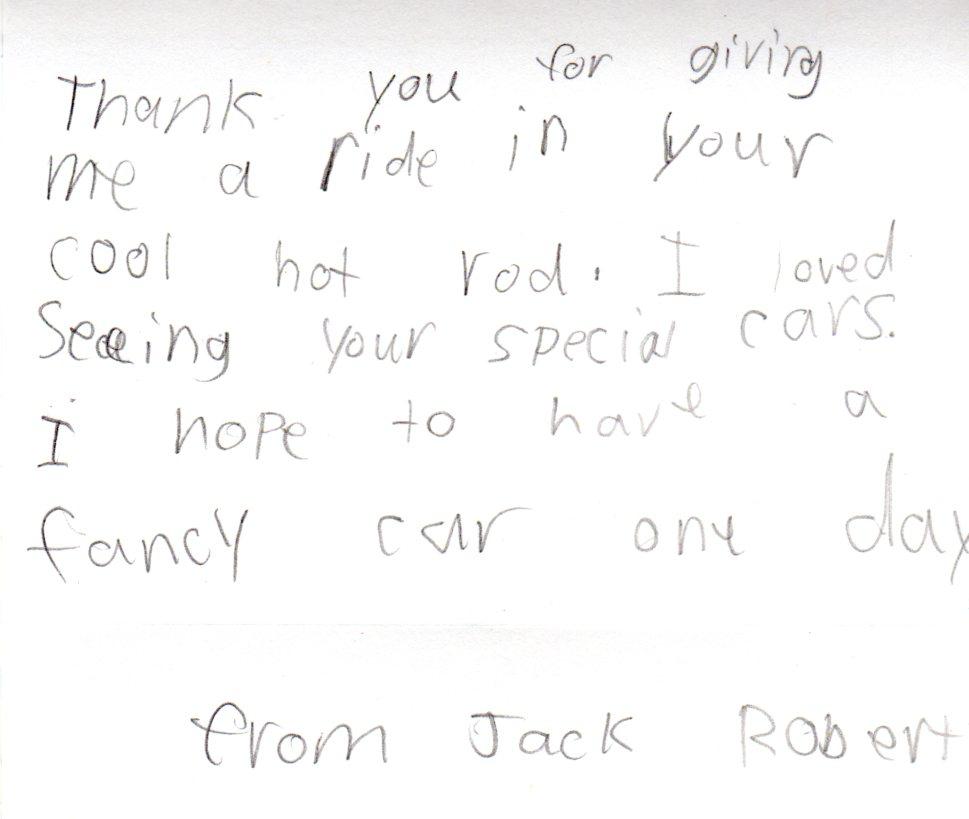 Thank you for giving
me a ride in your
cool hot rod. I loved
Seeing your special cars.
I hope to have a
fancy car one day
from Jack Robert